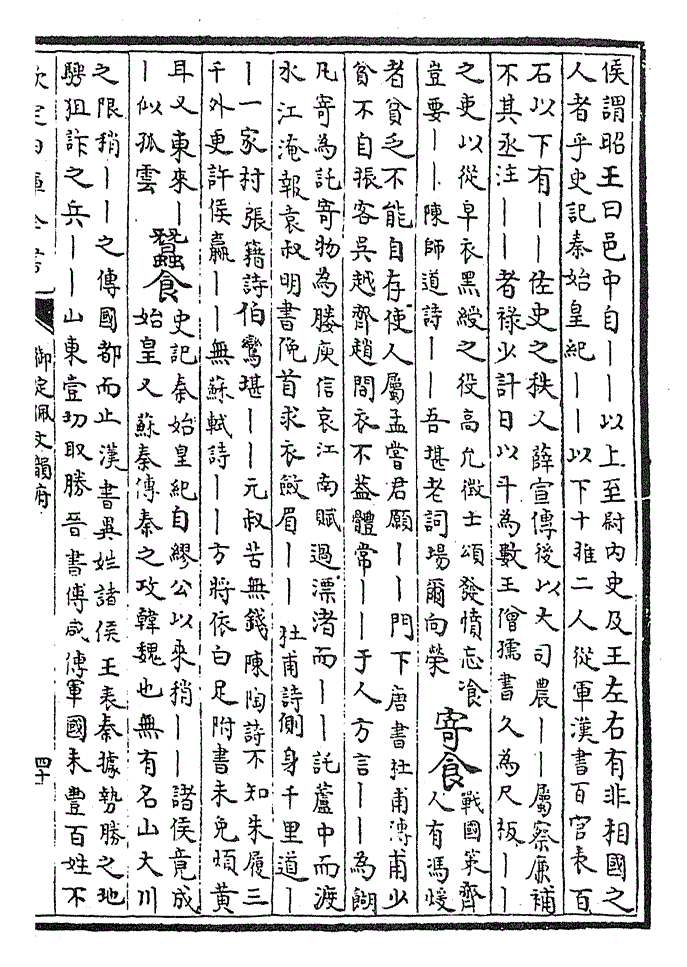 侯謂昭王曰邑中自||以上至尉内史及王左右有非相國之
人者乎史記秦始皇紀||以下十推二人從軍漢書百官表百
石以下有||佐史之秩又薛宣傳後以大司農||屬察廉補
不其丞注||者祿少計日以斗為數王僧孺書久為尺板||
之吏以從皁衣黑綬之役高允徵士頌發憤忘飡
豈要||陳師道詩||吾堪老詞場爾向榮
寄食
戰國策齊
人有馮煖
者貧乏不能自存使人屬孟嘗君願||門下唐書杜甫傳甫少
貧不自振客吳越齊趙間衣不葢體常||于人方言||為餬
凡寄為託寄物為媵庾信哀江南賦過漂渚而||託蘆中而渡
水江淹報袁叔明書俛首求衣斂眉||杜甫詩側身千里道|
|一家村張籍詩伯鸞堪||元叔苦無錢陳陶詩不知朱履三
千外更許侯嬴||無蘇軾詩||方將依白足附書未免煩黃
耳又東來|
|似孤雲
蠶食
史記秦始皇紀自繆公以來稍||諸侯竟成
始皇又蘇秦傳秦之攻韓魏也無有名山大川
之限稍||之傳國都而止漢書異姓諸侯王表秦據勢勝之地
騁狙詐之兵||山東壹切取勝晉書傅咸傳軍國未豐百姓不
欽定四庫全書
御定佩文韻府
四十